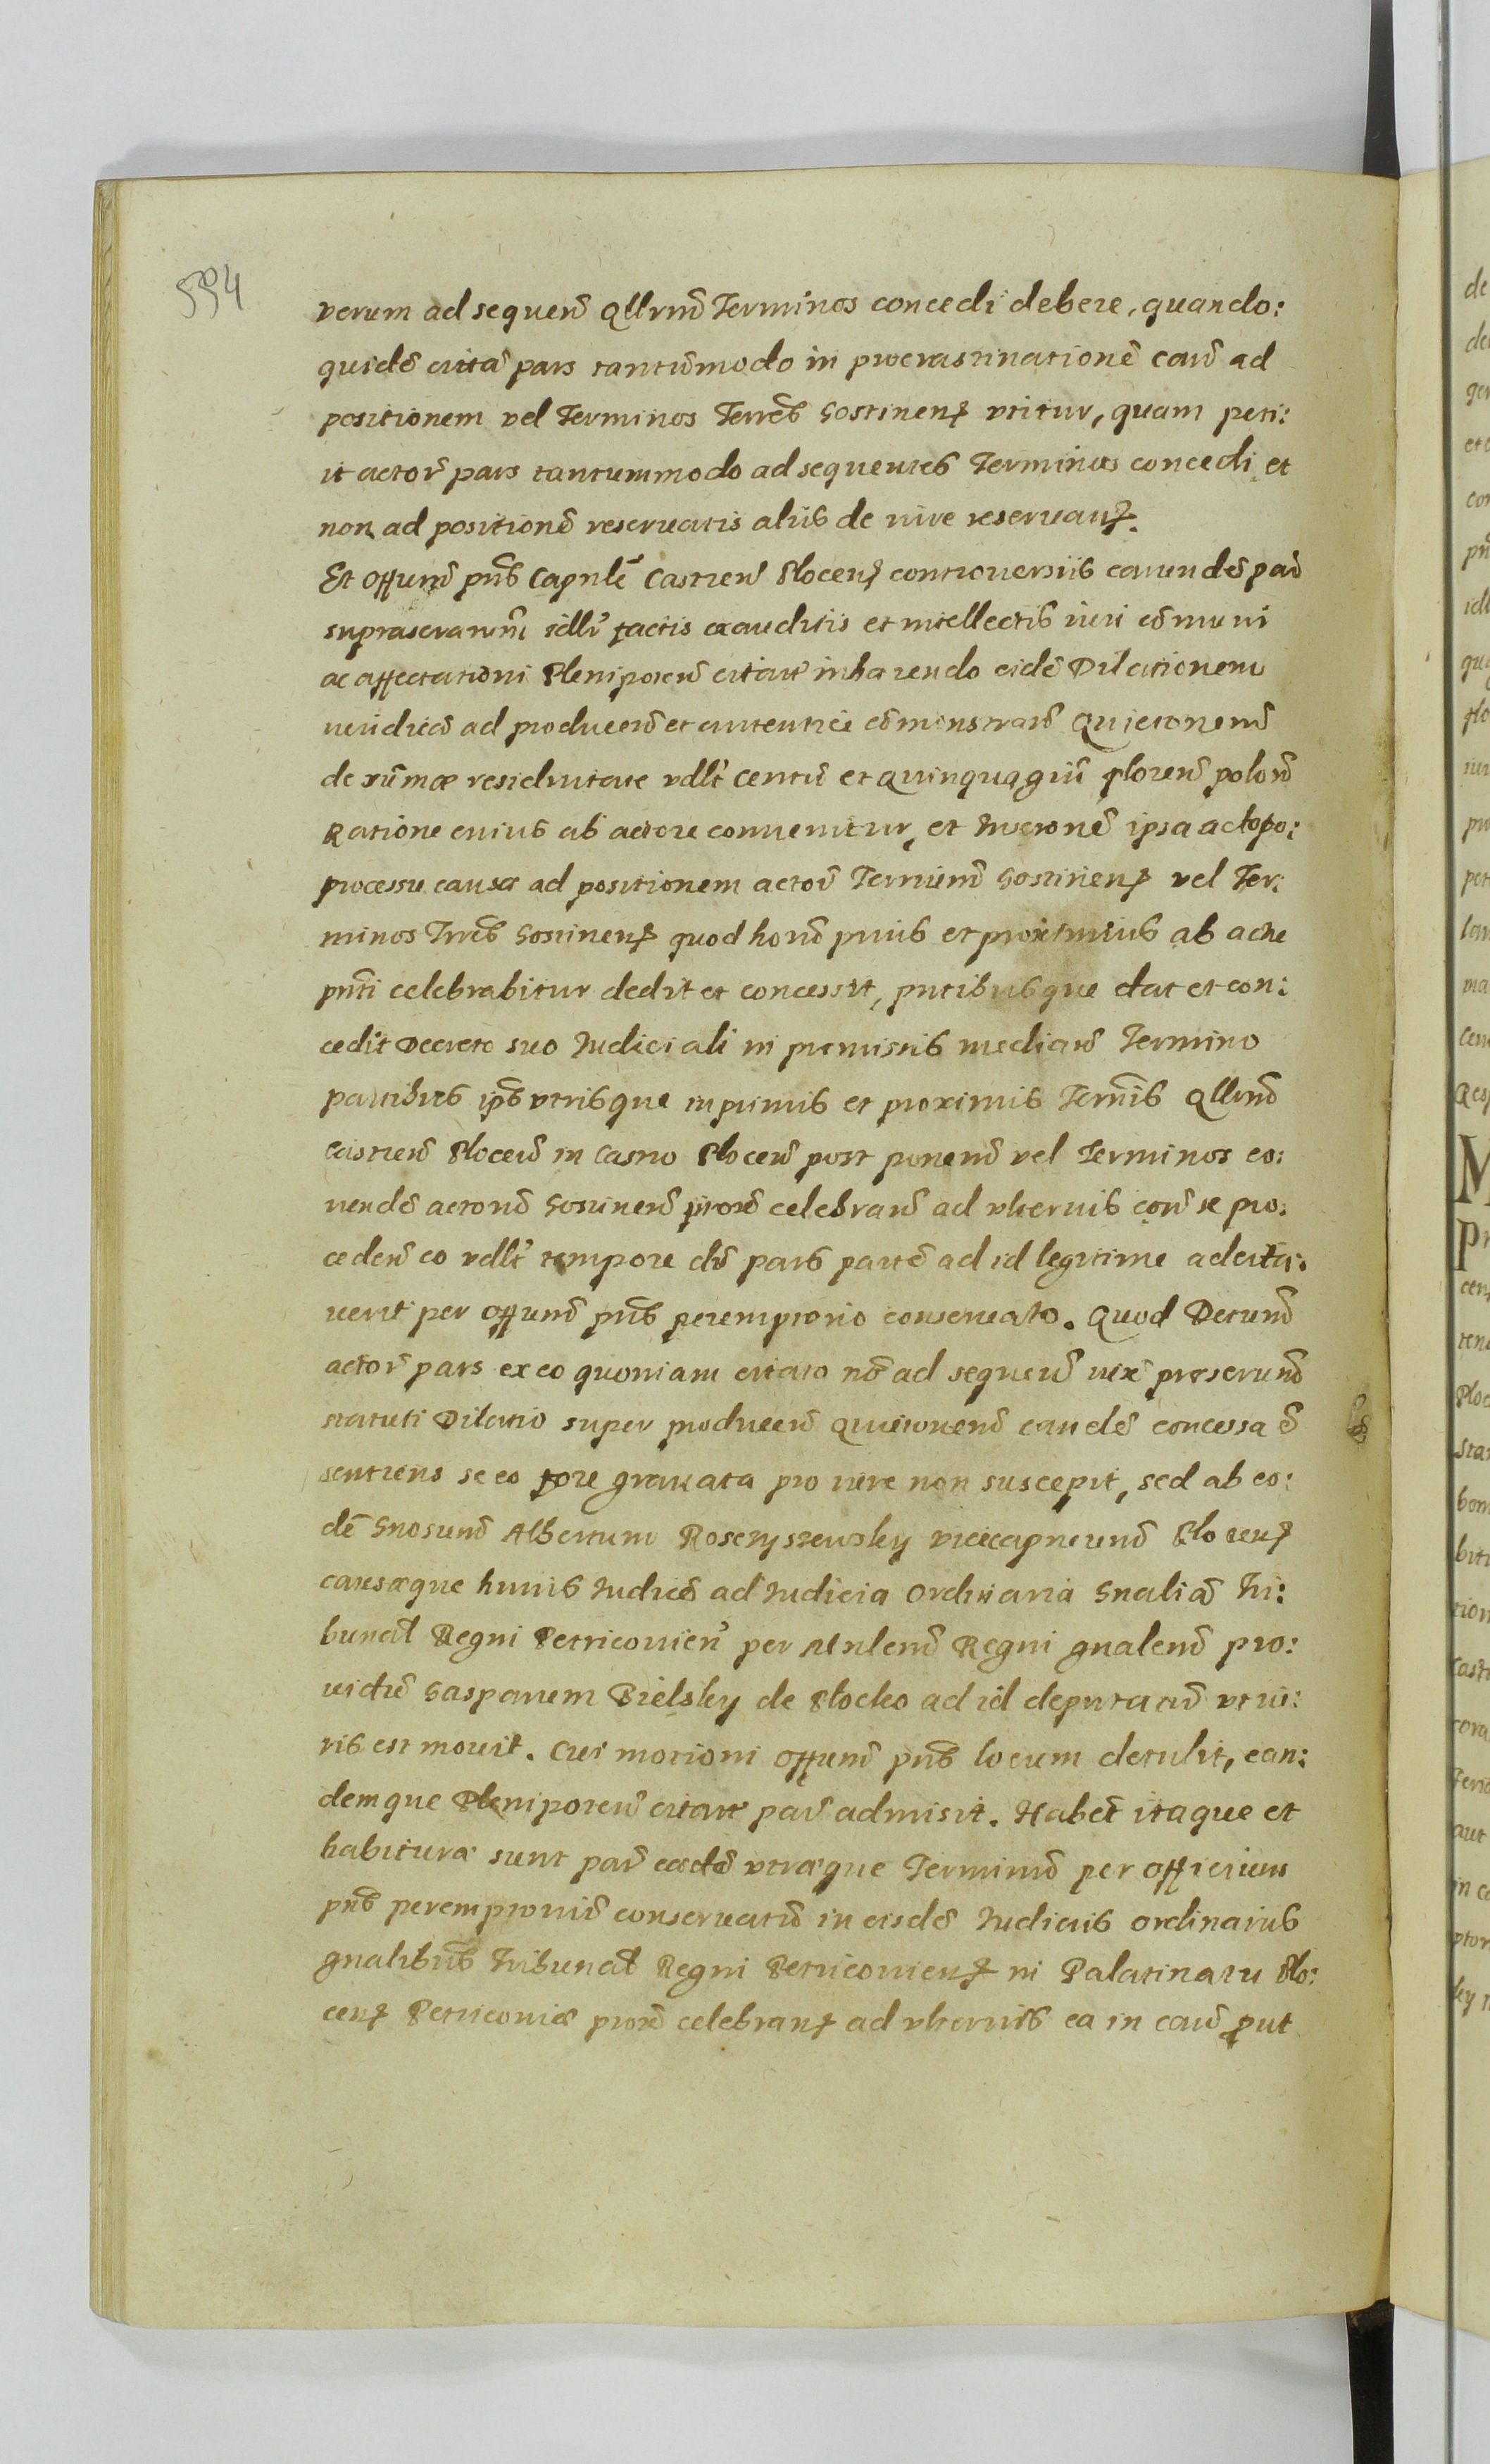 594
verum ad sequeñ Qllrum̃ Terminos concedi debere, quando:
quidẽ citã pars tantũmodo in procrastinationẽ cauẽ ad
positionem vel Terminos Terrẽs Gostinenṣ vtitur, quam peti:
it actor̃ pars tantummodo ad sequentes Terminos concedi et
non ad positionẽ reseruatis aliis de iure reseruanṣ.
Et Offium̃ pñs Capnlẽ Castreñ Plocenṣ controuersiis earundẽ par̃
suprascrarum̃ idlr̃ factis exauditis et intellectis iuri cõmuni
ac affectationi Plenipoteñ citatæ inhærendo eidẽ Dilationem
iuridicã ad produceñ et autentice cõmonstrañ Quietonem̃
de sũmæ residuitate vdlt̃ Centũ et Quinquagiũ florenõ polonõ
Ratione cuius ab actore conuenitur, et Inscronẽ ipsa actopo:
processu causæ ad positionem actorũ Terrium̃ Gostinenṣ vel Ter:
minos Trrẽs Gostinenṣ quod horũ prius et proximius ab actu
pñti celebrabitur dedit et concessit, pntibusque dat et con:
cedit Decreto suo Iudiciali in premissis mediañ Termino
partibus ip̃s vtrisque in primis et proximis Terñis Qllrum̃
Castreñ Ploceñ in Castro Ploceñ post poneñ vel Terminos eo:
rundẽ actorũ Gostineñ prorẽ celebrañ ad vlterius corã se pro:
cedeñ eo vdlt̃ tempore dũ pars partẽ ad id legitime adcita:
uerit per Offium̃ pñs peremptorio conseruato. Quod Decrum̃
actor̃ pars ex eo quoniam citato nõ ad sequeñ iuxẽ præscrum̃
statuti Dilatio super produceñ Quietonem̃ eandẽ concessa ẽ
sentiens se eo fore grauata pro iure non suscepit, sed ab eo:
dẽ Gnosum̃ Albertum Rosczyszewsky vicecapneum̃ Plocenṣ
causæque huius Iudicẽ ad Iudicia Ordinaria Gnaliã Tri:
bunal̃ Regni Petricouieñ per Mnlem̃ Regni gnalem̃ pro:
uidũ Gasparem Bielsky de Plocko ad id deputatũ vt iu:
ris est mouit. Cui motioni Offium̃ pñs locum detulit, ean:
demque Plenipoteñ citatæ par̃ admisit. Habet itaque et
habituræ sunt par̃ eædẽ vtræque Terminũ per Officium
pñs peremptoriũ conseruatũ in eisdẽ Iudiciis ordinariis
gnalibus Tribunal̃ Regni Petricouienṣ in Palatinatu Plo:
cenṣ Petricouiæ prorẽ celebranṣ ad vlterius ea in cauẽ put